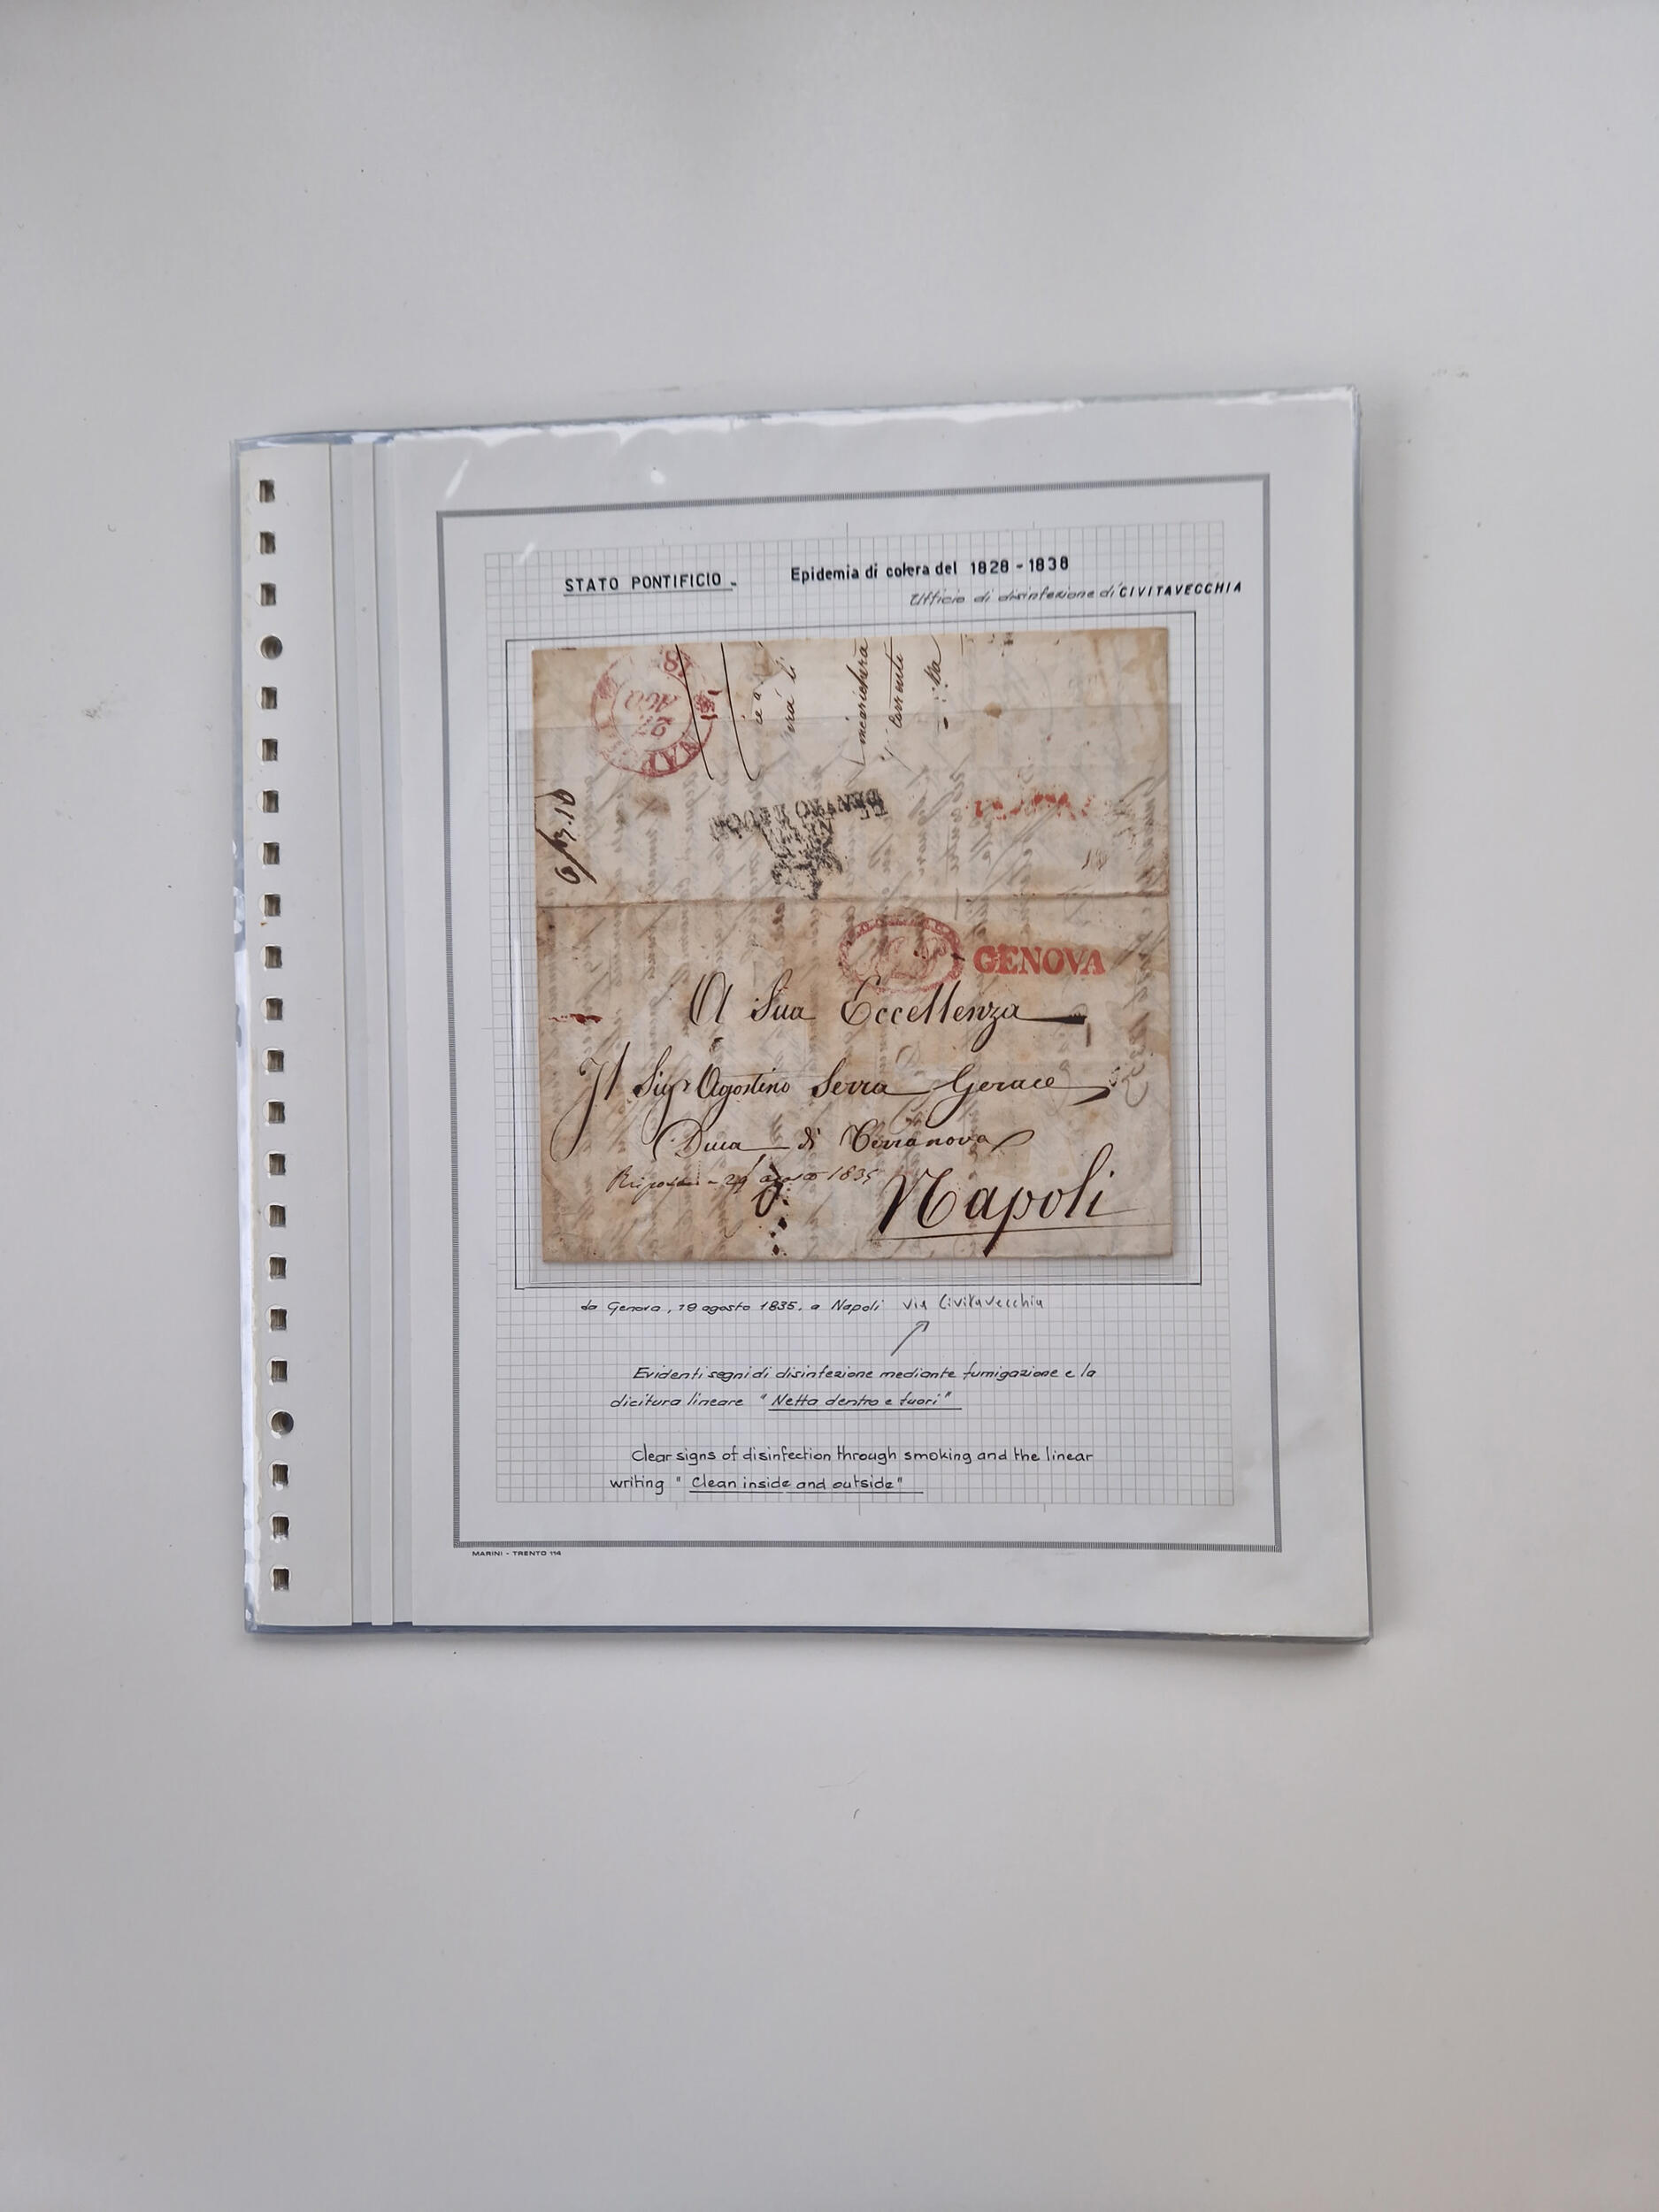 STATO PONTIFICIO - Epidemia di colera del 1828 - 1838
Ufficio di disinfezione di CIVITAVECCHIA
27
AGO
incaricherà
corrente
DENTRO E FUORI
GENOVA
A Sua Eccellenza
Il Sigr Agostino Serra Gerace
Duca di Terranova
agosto 1835
Napoli
da Genova, 19 agosto 1835. a Napoli via Civitavecchia
Evidenti segni di disinfezione mediante fumigazione e la
dicitura lineare "Netta dentro e fuori"
Clear signs of disinfection through smoking and the linear
writing "Clean inside and outside"
MARINI - TRENTO 114